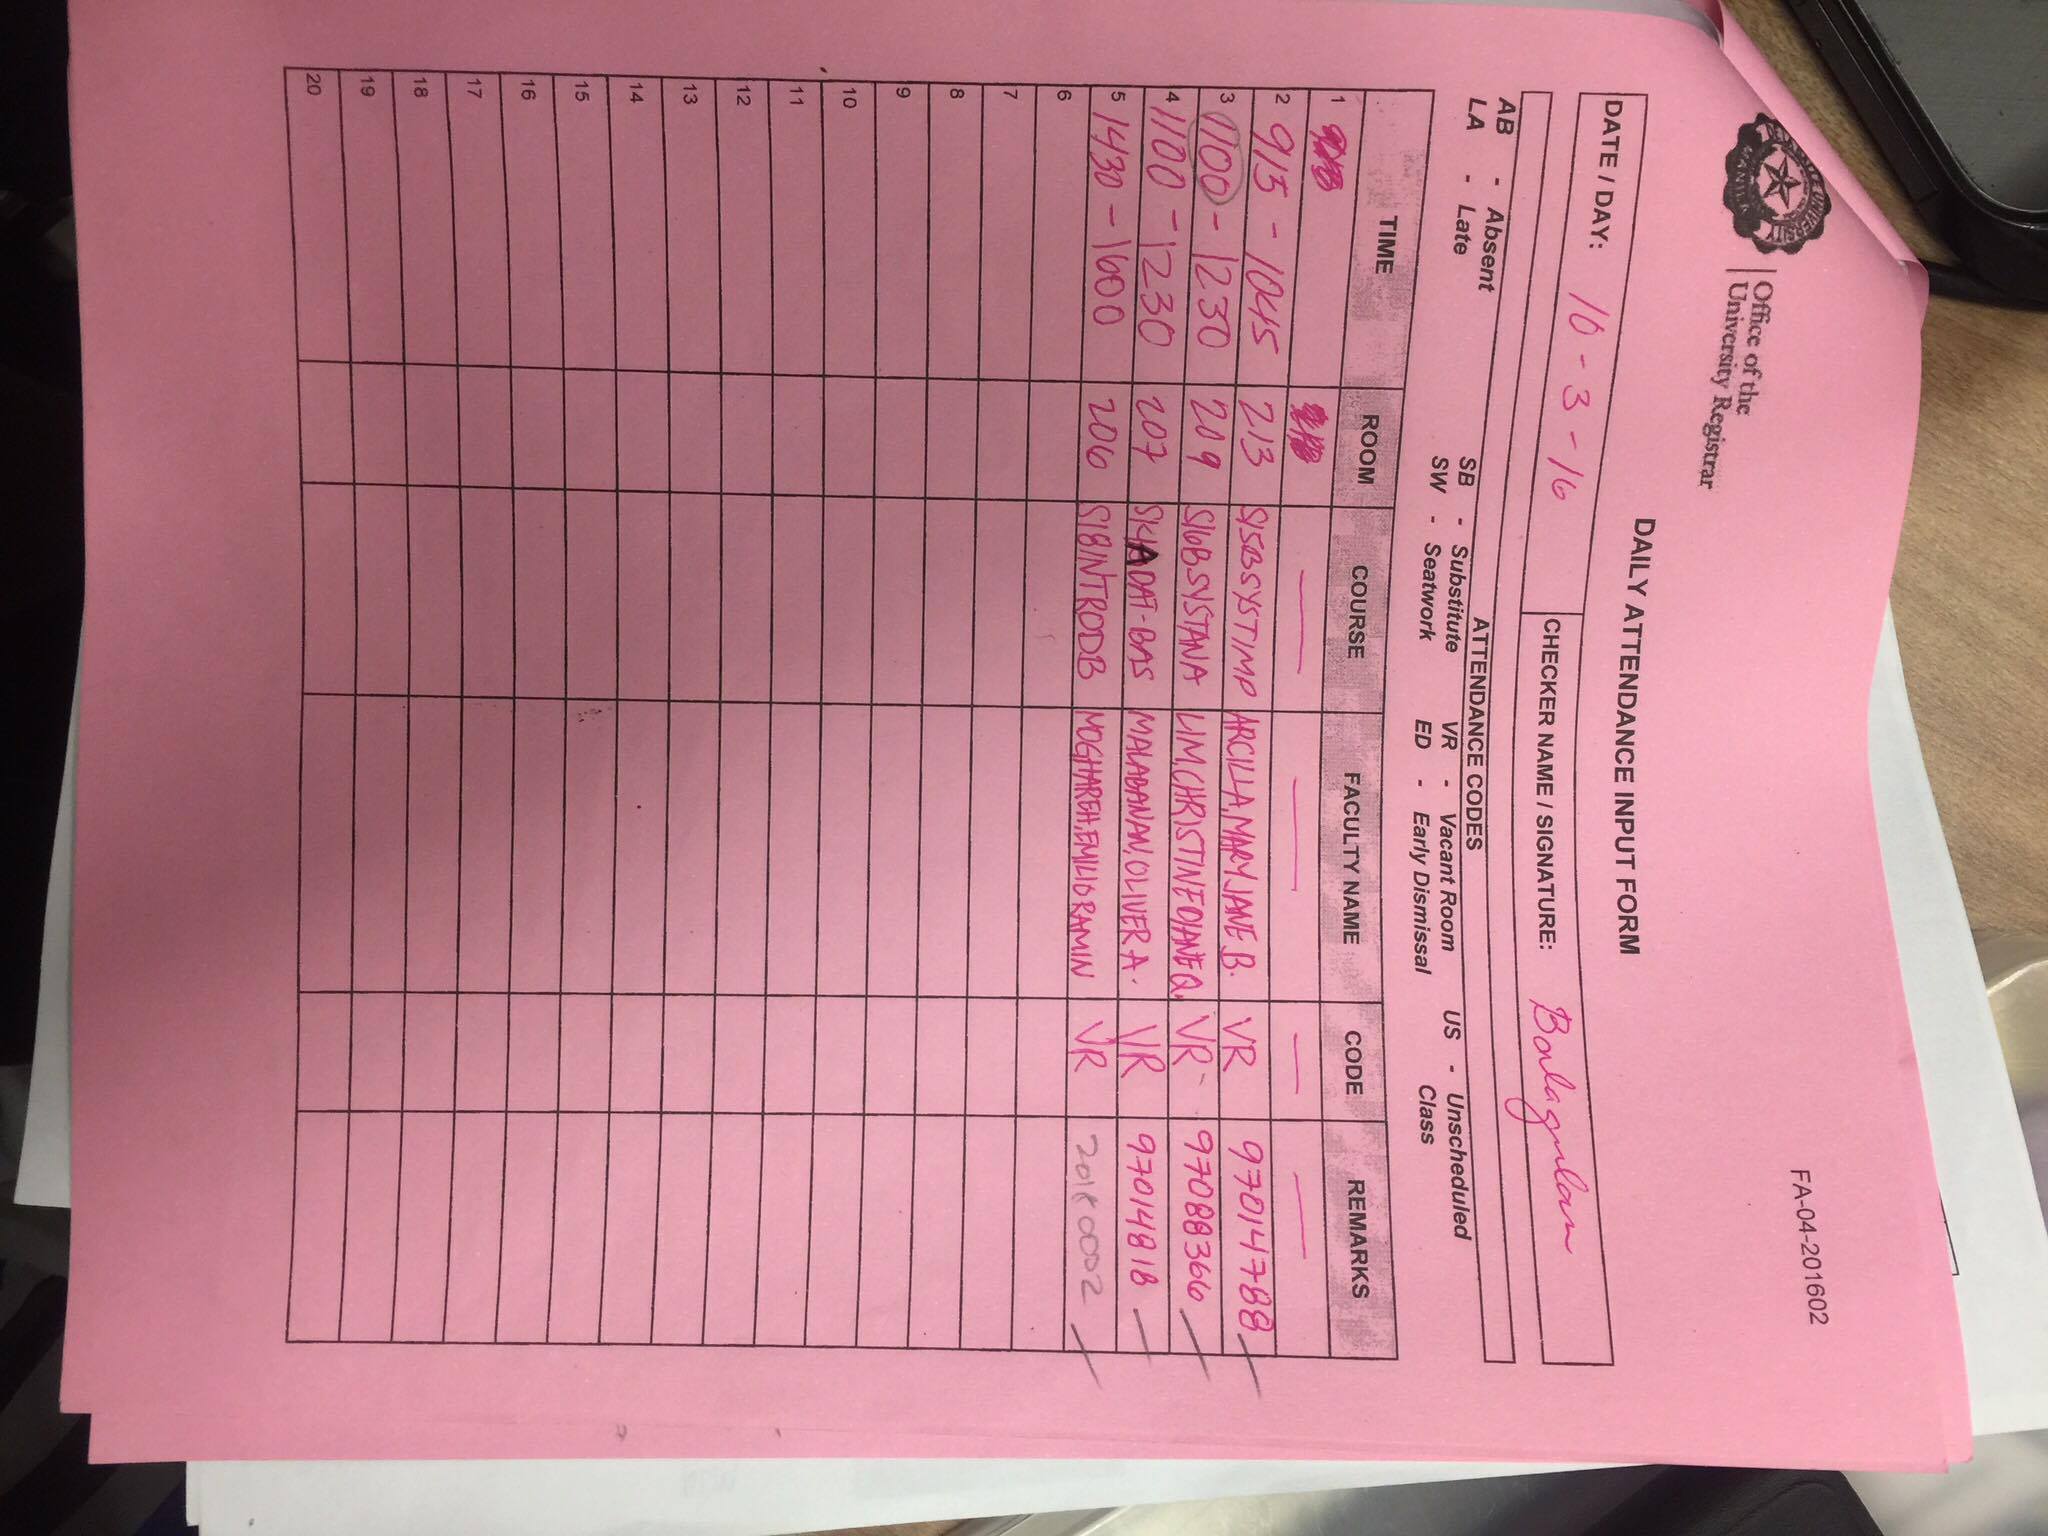 DE LA SALLE UNIVERSITY
MANILA
Office of the
University Registrar
FA-04-201602
DAILY ATTENDANCE INPUT FORM
DATE / DAY: 10-3-16 CHECKER NAME / SIGNATURE: Balagulan
ATTENDANCE CODES
AB - Absent SB - Substitute VR - Vacant Room US - Unscheduled
LA - Late SW - Seatwork ED - Early Dismissal Class
TIME ROOM COURSE FACULTY NAME CODE REMARKS
1
2 915 - 1045 213 S15BSYSTIMP ARCILLA, MARY JANE B. VR 97014788
3 1100 - 1230 209 S16BSYSTANA LIM, CHRISTINE DIANE Q. VR 97088366
4 1100 - 1230 207 S14A DAT-BAS MALABANAN, OLIVER A. VR 97014818
5 1430 - 1600 206 S18INTRODB MOGHAREH, EMILIO RAMIN VR 20180002
6
7
8
9
10
11
12
13
14
15
16
17
18
19
20